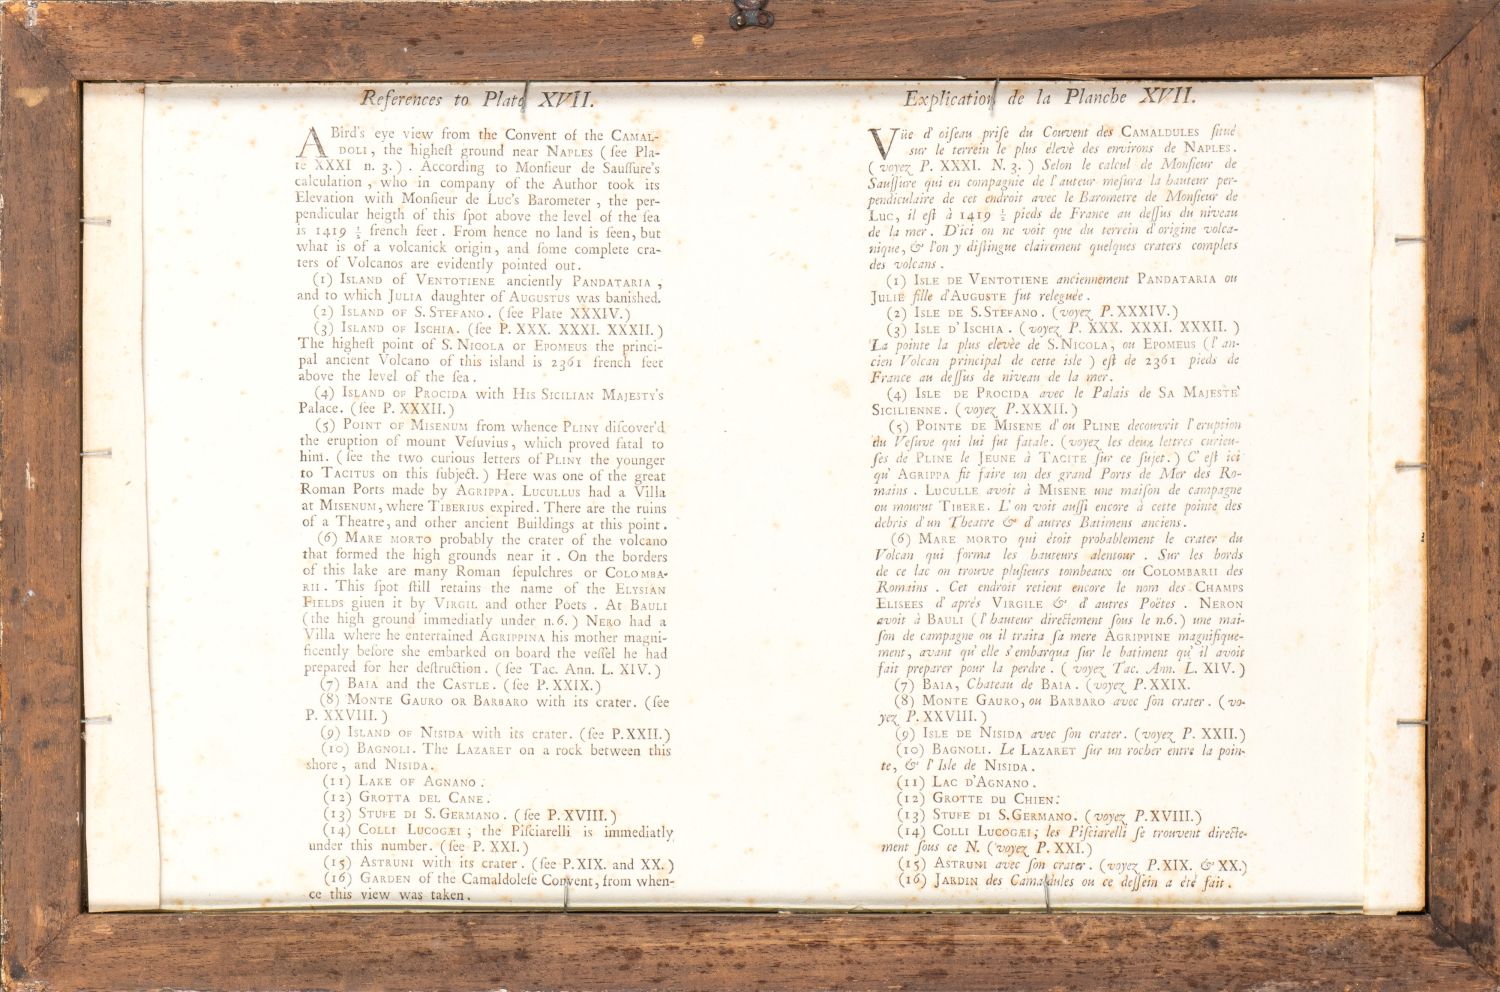 References to Plate XVII.
A Bird's eye view from the Convent of the CAMAL-
DOLI, the higheſt ground near NAPLES (ſee Pla-
te XXXI n. 3.). According to Monſieur de Sauſſure's
calculation, who in company of the Author took its
Elevation with Monſieur de Luc's Barometer, the per-
pendicular heigth of this ſpot above the level of the ſea
is 1419 ½ french feet. From hence no land is ſeen, but
what is of a volcanick origin, and ſome complete cra-
ters of Volcanos are evidently pointed out.
(1) ISLAND OF VENTOTIENE anciently PANDATARIA,
and to which JULIA daughter of AUGUSTUS was baniſhed.
(2) ISLAND OF S. STEFANO. (ſee Plate XXXIV.)
(3) ISLAND OF ISCHIA. (ſee P. XXX. XXXI. XXXII.)
The higheſt point of S. NICOLA or EPOMEUS the princi-
pal ancient Volcano of this island is 2361 french feet
above the level of the ſea.
(4) ISLAND OF PROCIDA with HIS SICILIAN MAJESTY'S
Palace. (ſee P. XXXII.)
(5) POINT OF MISENUM from whence PLINY diſcover'd
the eruption of mount Veſuvius, which proved fatal to
him. (ſee the two curious letters of PLINY the younger
to TACITUS on this ſubject.) Here was one of the great
Roman Ports made by AGRIPPA. LUCULLUS had a Villa
at MISENUM, where TIBERIUS expired. There are the ruins
of a Theatre, and other ancient Buildings at this point.
(6) MARE MORTO probably the crater of the volcano
that formed the high grounds near it. On the borders
of this lake are many Roman ſepulchres or COLOMBA-
RII. This ſpot ſtill retains the name of the ELYSIAN
FIELDS giuen it by VIRGIL and other Poets. At BAULI
(the high ground immediatly under n.6.) NERO had a
Villa where he entertained AGRIPPINA his mother magni-
ficently before ſhe embarked on board the veſſel he had
prepared for her deſtruction. (ſee Tac. Ann. L. XIV.)
(7) BAIA and the CASTLE. (ſee P. XXIX.)
(8) MONTE GAURO OR BARBARO with its crater. (ſee
P. XXVIII.)
(9) ISLAND OF NISIDA with its crater. (ſee P.XXII.)
(10) BAGNOLI. The LAZARET on a rock between this
shore, and NISIDA.
(11) LAKE OF AGNANO.
(12) GROTTA DEL CANE.
(13) STUFE DI S. GERMANO. (ſee P. XVIII.)
(14) COLLI LUCOGÆI; the Piſciarelli is immediatly
under this number. (ſee P. XXI.)
(15) ASTRUNI with its crater. (ſee P.XIX. and XX.)
(16) GARDEN of the Camaldoleſe Convent, from when-
ce this view was taken.
Explication de la Planche XVII.
Vüe d' oiſeau priſe du Couvent des CAMALDULES ſitué
sur le terrein le plus élevè des environs de NAPLES.
(voyez P. XXXI. N. 3.) Selon le calcul de Monſieur de
Sauſſure qui en compagnie de l'auteur meſura la hauteur per-
pendiculaire de cet endroit avec le Barometre de Monſieur de
LUC, il eſt à 1419 ½ pieds de France au deſſus du niveau
de la mer. D'ici on ne voit que du terrein d'origine volca-
nique, & l'on y diſtingue clairement quelques craters complets
des volcans.
(1) ISLE DE VENTOTIENE anciennement PANDATARIA ou
JULIE fille d'AUGUSTE fut releguée.
(2) ISLE DE S. STEFANO. (voyez P. XXXIV.)
(3) ISLE D'ISCHIA. (voyez P. XXX. XXXI. XXXII.)
La pointe la plus elevèe de S. NICOLA, ou EPOMEUS (l'an-
cien Volcan principal de cette isle) eſt de 2361 pieds de
France au deſſus de niveau de la mer.
(4) ISLE DE PROCIDA avec le Palais de SA MAJESTE'
SICILIENNE. (voyez P.XXXII.)
(5) POINTE DE MISENE d'où PLINE decouvrit l'eruption
du Veſuve qui lui fut fatale. (voyez les deux lettres curieu-
ſes de PLINE LE JEUNE à TACITE ſur ce ſujet.) C'eſt ici
qu' AGRIPPA fit faire un des grand Ports de Mer des Ro-
mains. LUCULLE avoit à MISENE une maiſon de campagne
ou mourut TIBERE. L'on voit auſſi encore à cette pointe des
debris d'un Theatre & d'autres Batimens anciens.
(6) MARE MORTO qui étoit probablement le crater du
Volcan qui forma les hauteurs alentour. Sur les bords
de ce lac on trouve pluſieurs tombeaux ou COLOMBARII des
Romains. Cet endroit retient encore le nom des CHAMPS
ELISEES d'aprés VIRGILE & d'autres Poëtes. NERON
avoit à BAULI (l'hauteur directement ſous le n.6.) une mai-
ſon de campagne ou il traita ſa mere AGRIPPINE magnifique-
ment, avant qu'elle s'embarqua ſur le batiment qu'il avoit
fait preparer pour la perdre. (voyez Tac. Ann. L. XIV.)
(7) BAIA, Chateau de BAIA. (voyez P.XXIX.
(8) MONTE GAURO, ou BARBARO avec ſon crater. (vo-
yez P. XXVIII.)
(9) ISLE DE NISIDA avec ſon crater. (voyez P. XXII.)
(10) BAGNOLI. Le LAZARET ſur un rocher entre la poin-
te, & l'Isle de NISIDA.
(11) LAC D'AGNANO.
(12) GROTTE DU CHIEN.
(13) STUFE DI S.GERMANO. (voyez P.XVIII.)
(14) COLLI LUCOGÆI; les Piſciarelli ſe trouvent directe-
ment ſous ce N. (voyez P. XXI.)
(15) ASTRUNI avec ſon crater. (voyez P.XIX. & XX.)
(16) JARDIN des Camaldules ou ce deſſein a été fait.